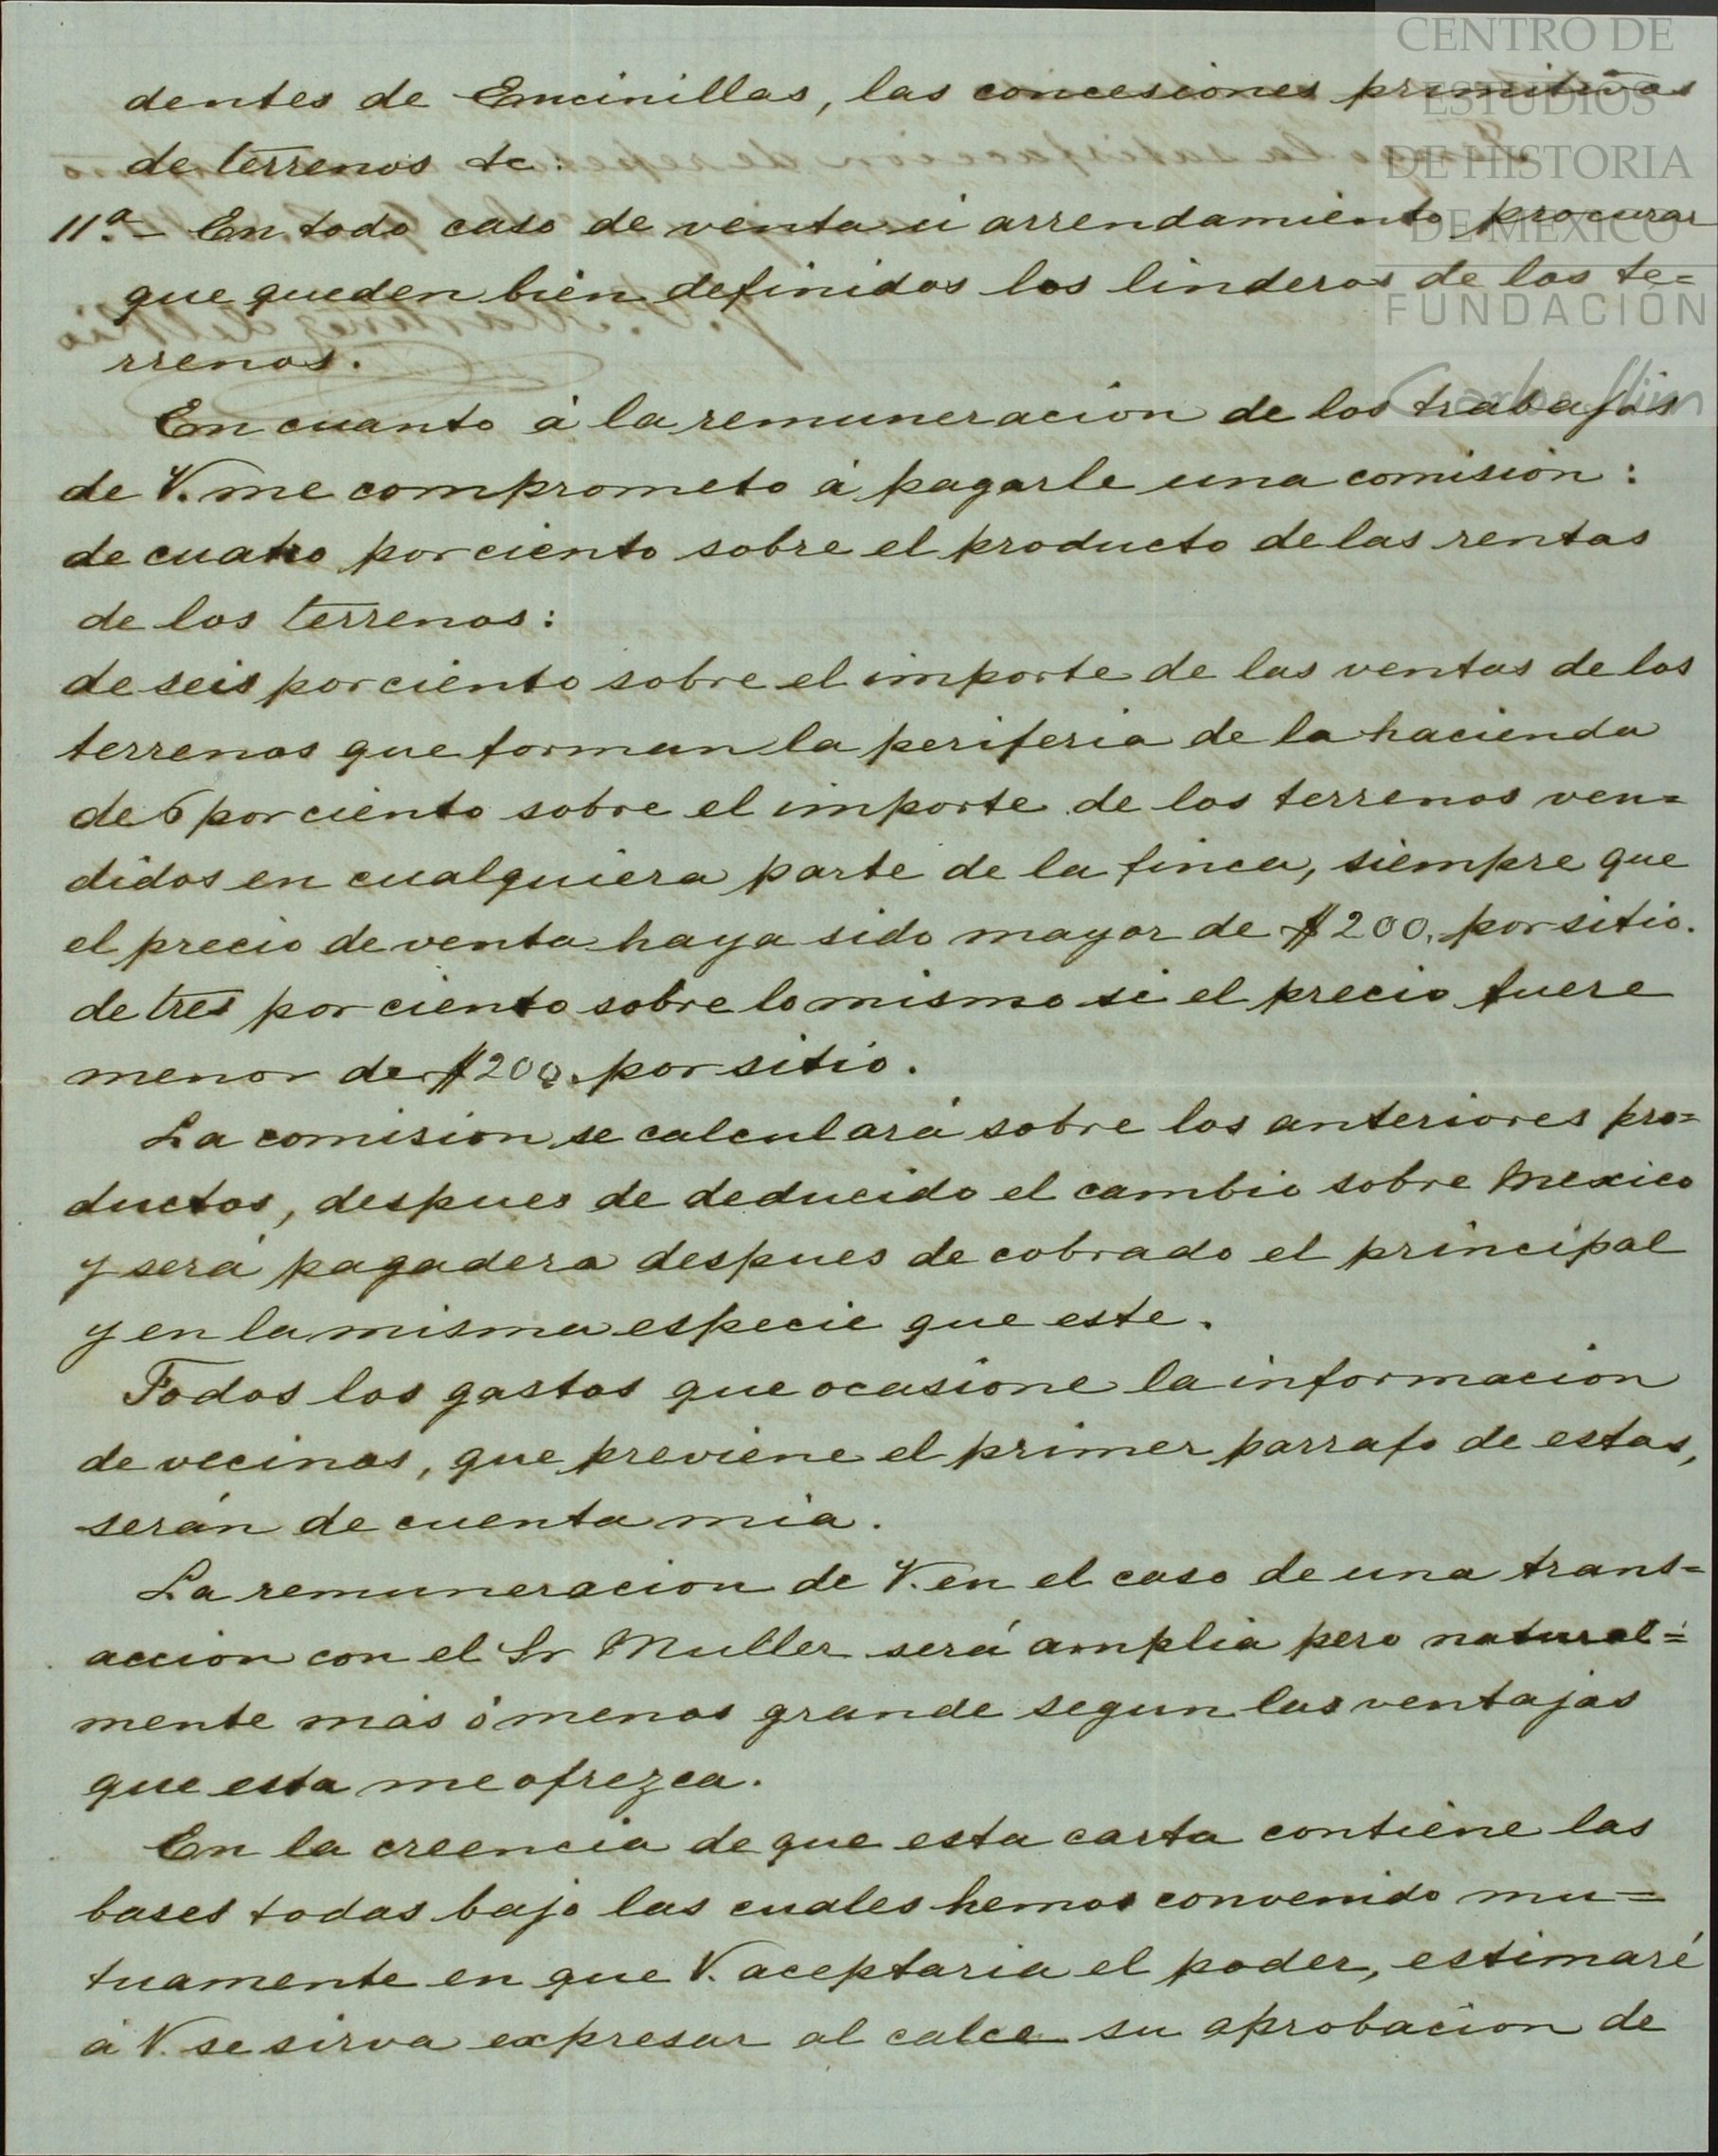 CENTRO DE
ESTUDIOS
DE HISTORIA
DE MÉXICO
FUNDACIÓN
Carlos Slim
dentes de Encinillas, las concesiones primitivas
de terrenos &c:
11.ª– En todo caso de venta ú arrendamiento procurar
que queden bien definidos los linderos de los te=
rrenos.
En cuanto á la remuneración de los trabajos
de V. me comprometo á pagarle una comisión:
de cuatro por ciento sobre el producto de las rentas
de los terrenos:
de seis por ciento sobre el importe de las ventas de los
terrenos que forman la periferia de la hacienda
de 6 por ciento sobre el importe de los terrenos ven=
didos en cualquiera parte de la finca, siempre que
el precio de venta haya sido mayor de $200. por sitio.
de tres por ciento sobre lo mismo si el precio fuere
menor de $200. por sitio.
La comision se calculará sobre los anteriores pro=
ductos, despues de deducido el cambio sobre Mexico
y será pagadera despues de cobrado el principal
y en la misma especie que este.
Todos los gastos que ocasione la informacion
de vecinos, que previene el primer parrafo de estas,
serán de cuenta mia.
La remuneracion de V. en el caso de una trans=
accion con el Sr Muller será amplia pero natural=
mente más ó menos grande segun las ventajas
que esta me ofrezca.
En la creencia de que esta carta contiene las
bases todas bajo las cuales hemos convenido mu=
tuamente en que V. aceptaria el poder, estimaré
á V. se sirva expresar al calce su aprobacion de